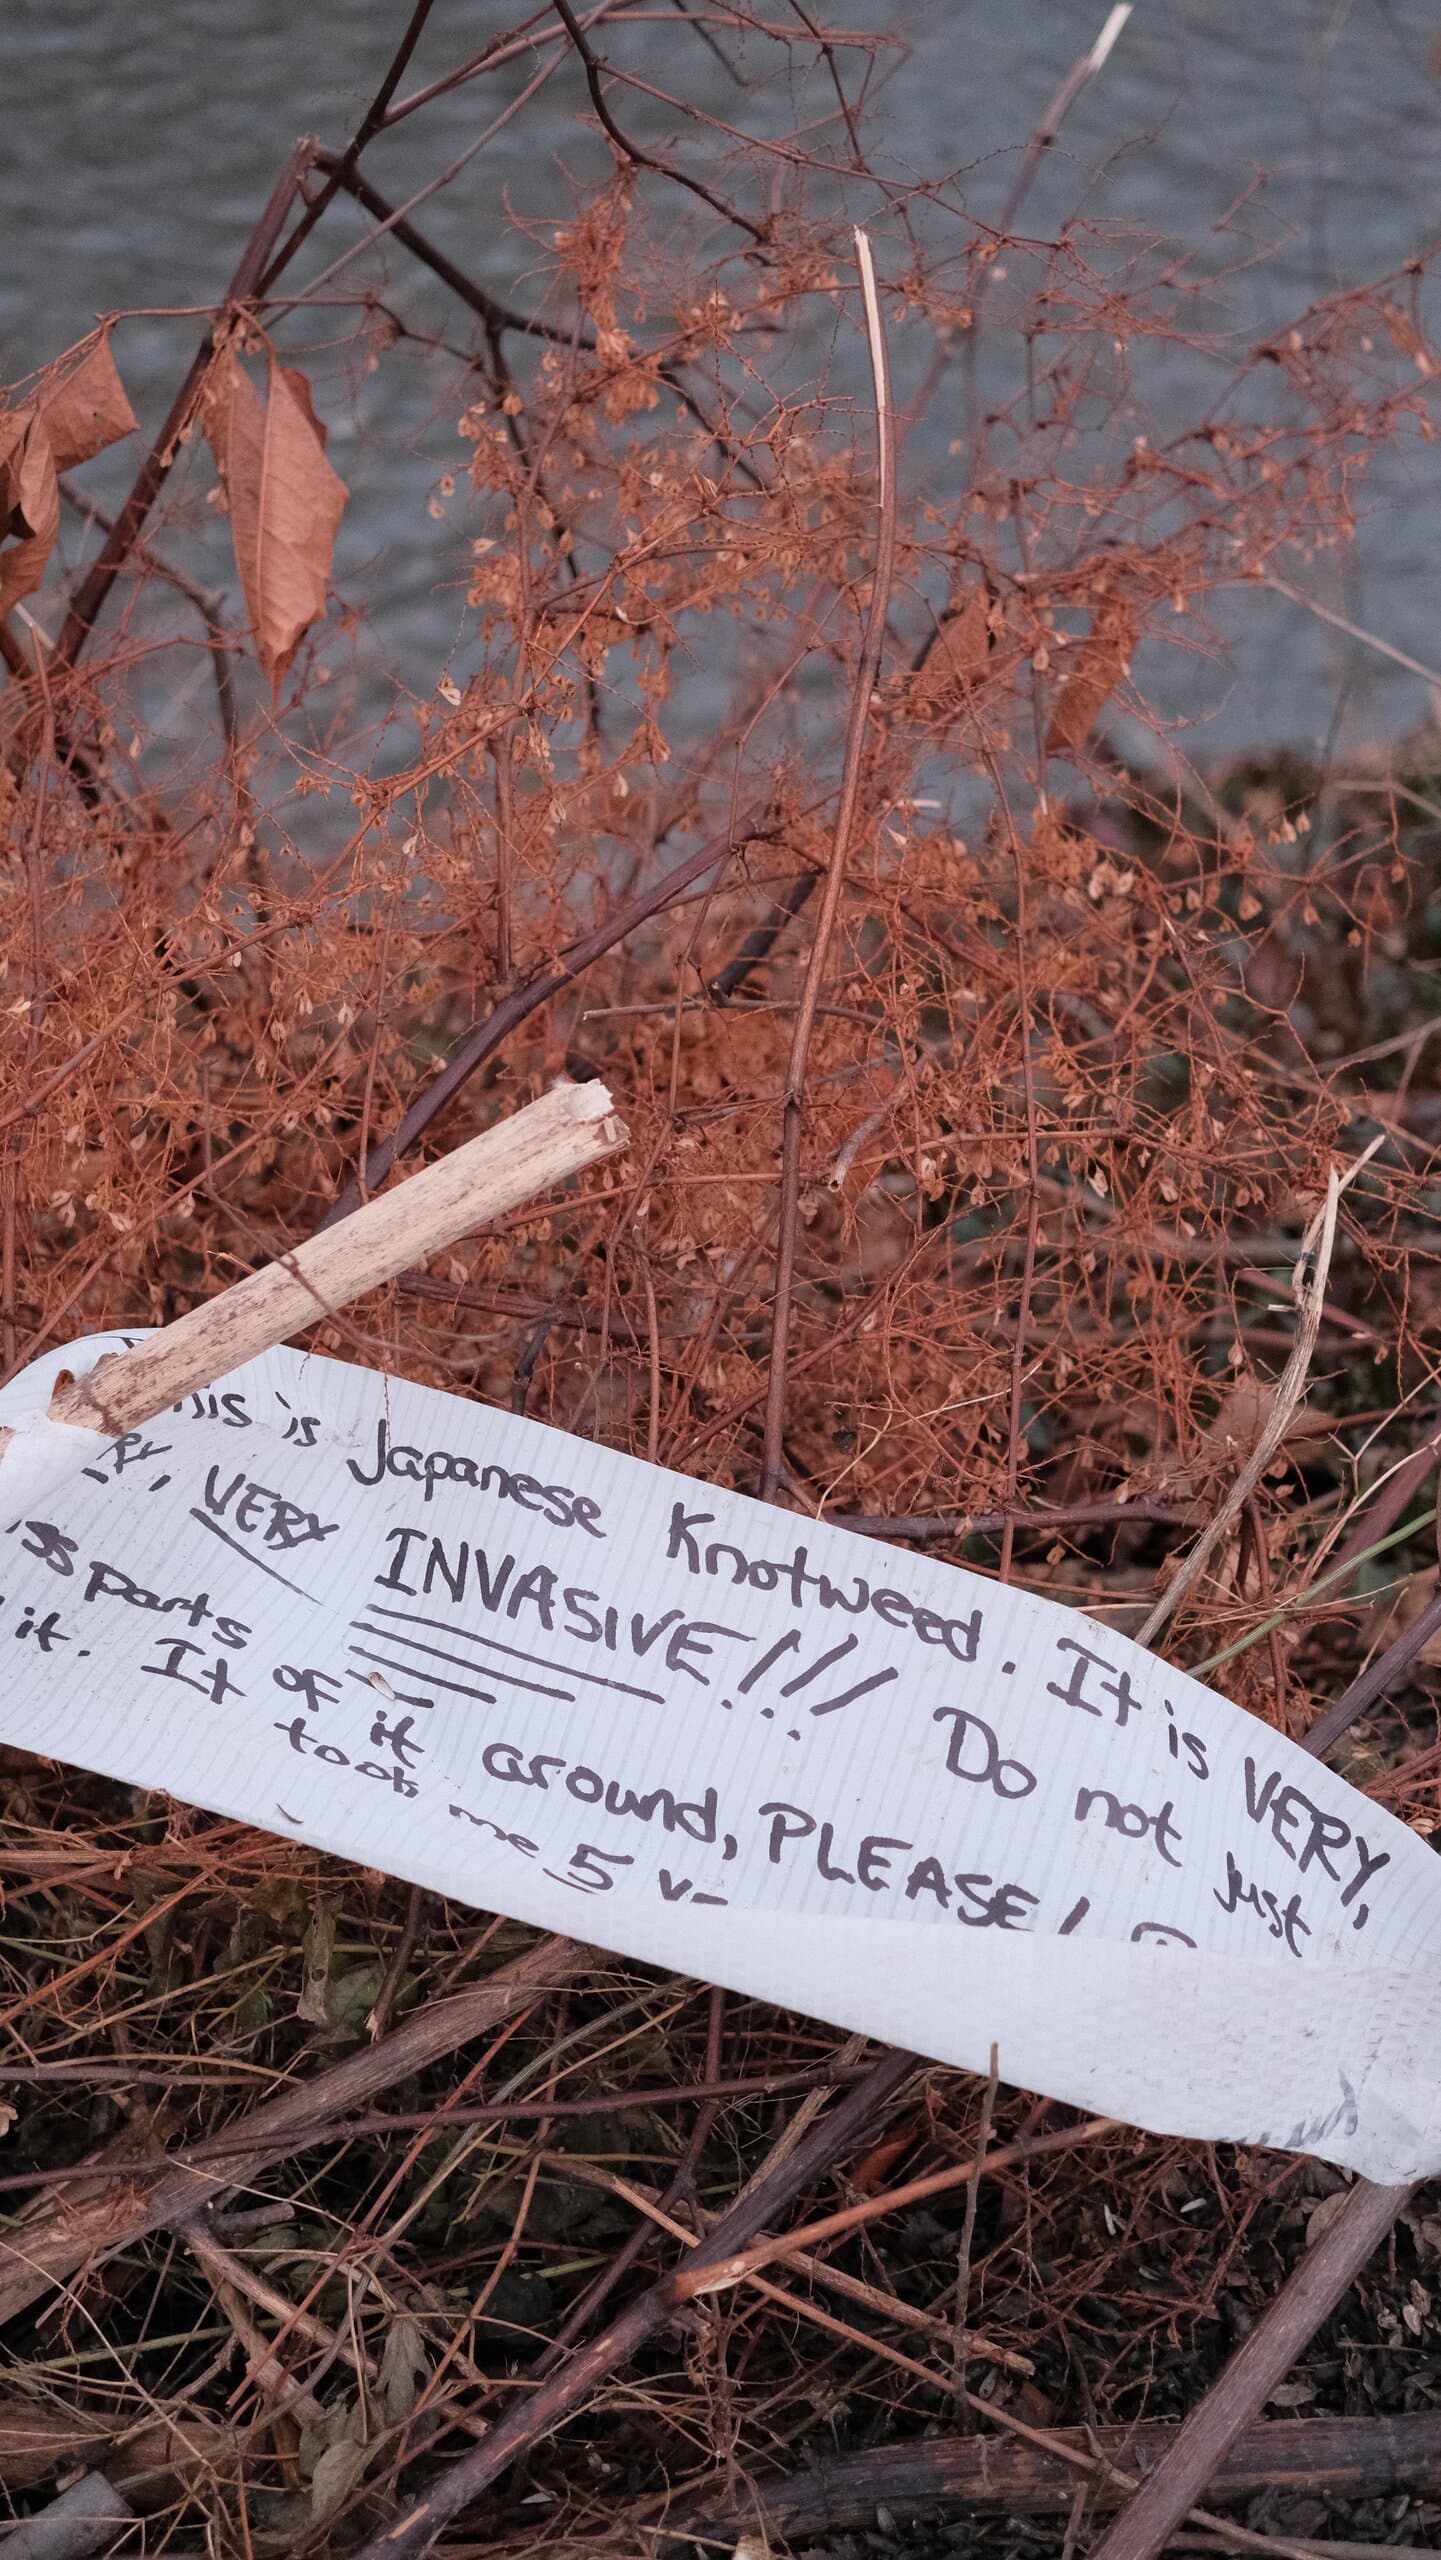 This is Japanese Knotweed. It is VERY,
VERY INVASIVE!!! Do not just
parts of it around, PLEASE!
it. It took me 5